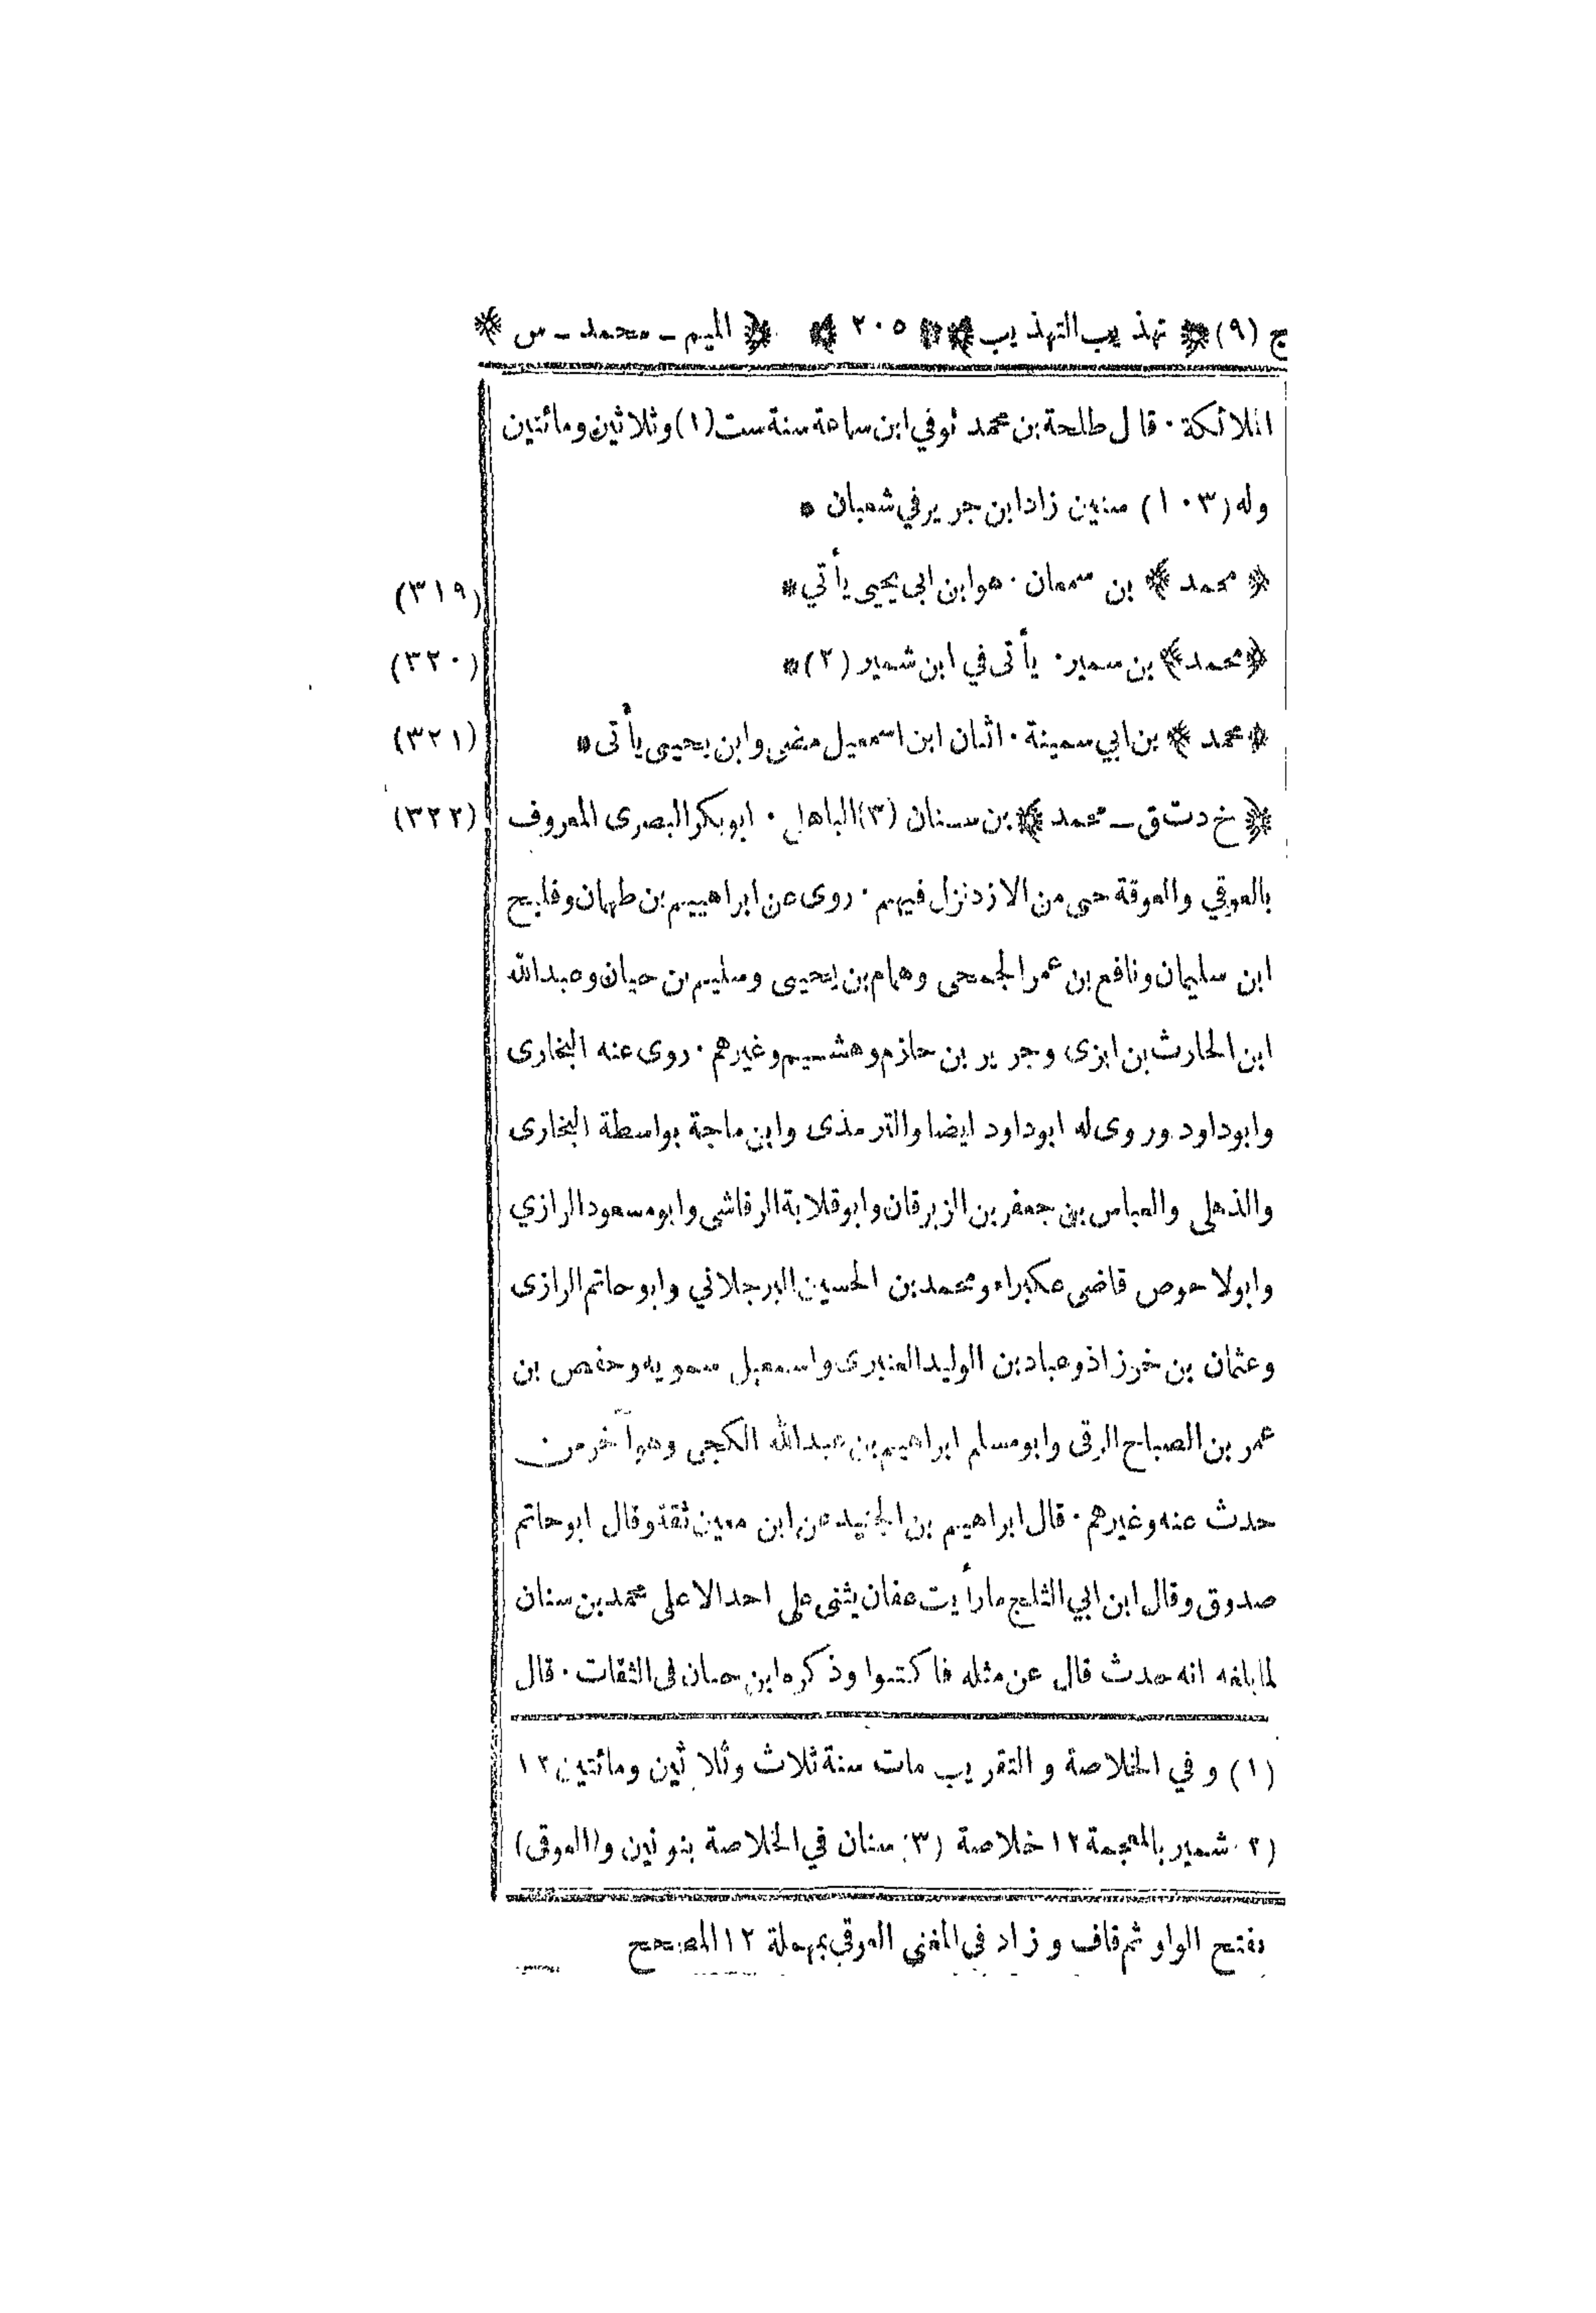 ج (٩) ﴿ تهذيب التهذيب ﴾ ﴿ ٢٠٥ ﴾ ﴿ الميم ـ محمد ـ س ﴾
الملائكة٠ قال طلحة بن محمد توفي ابن سماعة سنة ست (١) وثلاثين ومائتين
وله (١٠٣) سنين زاد ابن جرير في شعبان *
(٣١٩) ﴿ محمد ﴾ بن سمعان٠ هو ابن ابى يحيى يأتي *
(٣٢٠) ﴿ محمد ﴾ بن سمير٠ يأتى في ابن شمير (٢) *
(٣٢١) ﴿ محمد ﴾ بن ابي سمينة٠ اثنان ابن اسمعيل مضى وابن يحيى يأتى *
(٣٢٢) ﴿ خ د ت ق ـ محمد ﴾ بن سنان (٣) الباهلي٠ ابوبكر البصرى المعروف
بالعوقي والعوقة حى من الازد نزل فيهم٠ روى عن ابراهيم بن طهمان وفليح
ابن سليمان ونافع بن عمر الجمحى وهمام بن يحيى وسليم بن حيان وعبدالله
ابن الحارث بن ابزى وجرير بن حازم وهشيم وغيرهم٠ روى عنه البخارى
وابوداود وروى له ابوداود ايضا والترمذى وابن ماجة بواسطة البخارى
والذهلى والعباس بن جعفر بن الزبرقان وابوقلابة الرقاشى وابومسعود الرازي
وابولاحوص قاضى عكبراء ومحمد بن الحسين البرجلاني وابوحاتم الرازى
وعثمان بن خرزاذ وعباد بن الوليد العنبرى واسمعيل سمويه وحفص بن
عمر بن الصباح الرقى وابومسلم ابراهيم بن عبدالله الكجى وهو آخر من
حدث عنه وغيرهم٠ قال ابراهيم بن الجنيد عن ابن معين ثقة وقال ابوحاتم
صدوق وقال ابن ابي الثلج ما رأيت عفان يثنى على احد الا على محمد بن سنان
لما بلغه انه حدث قال عن مثله فاكتبوا وذكره ابن حبان فى الثقات٠ قال
(١) وفي الخلاصة والتقريب مات سنة ثلاث وثلاثين ومائتين ١٢
(٢) شمير بالمعجمة ١٢ خلاصة (٣) سنان في الخلاصة بنونين و(العوقى)
بفتح الواو ثم قاف وزاد فى المغنى العوقي بمهملة ١٢ المصحح